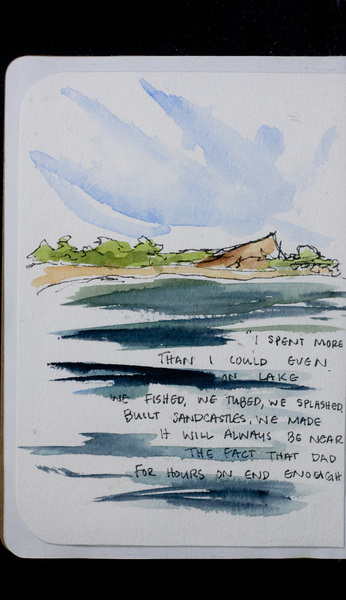 "I SPENT MORE
THAN I COULD EVEN
ON LAKE
WE FISHED, WE TUBED, WE SPLASHED,
BUILT SANDCASTLES, WE MADE
IT WILL ALWAYS BE NEAR
THE FACT THAT DAD
FOR HOURS ON END ENOUGH